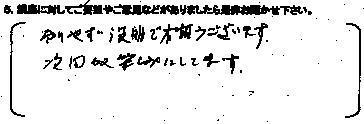 5. 講座に対してご要望やご意見などがありましたら是非お聞かせ下さい。
わかりやすい説明で有難うございます。
次回も楽しみにしてます。